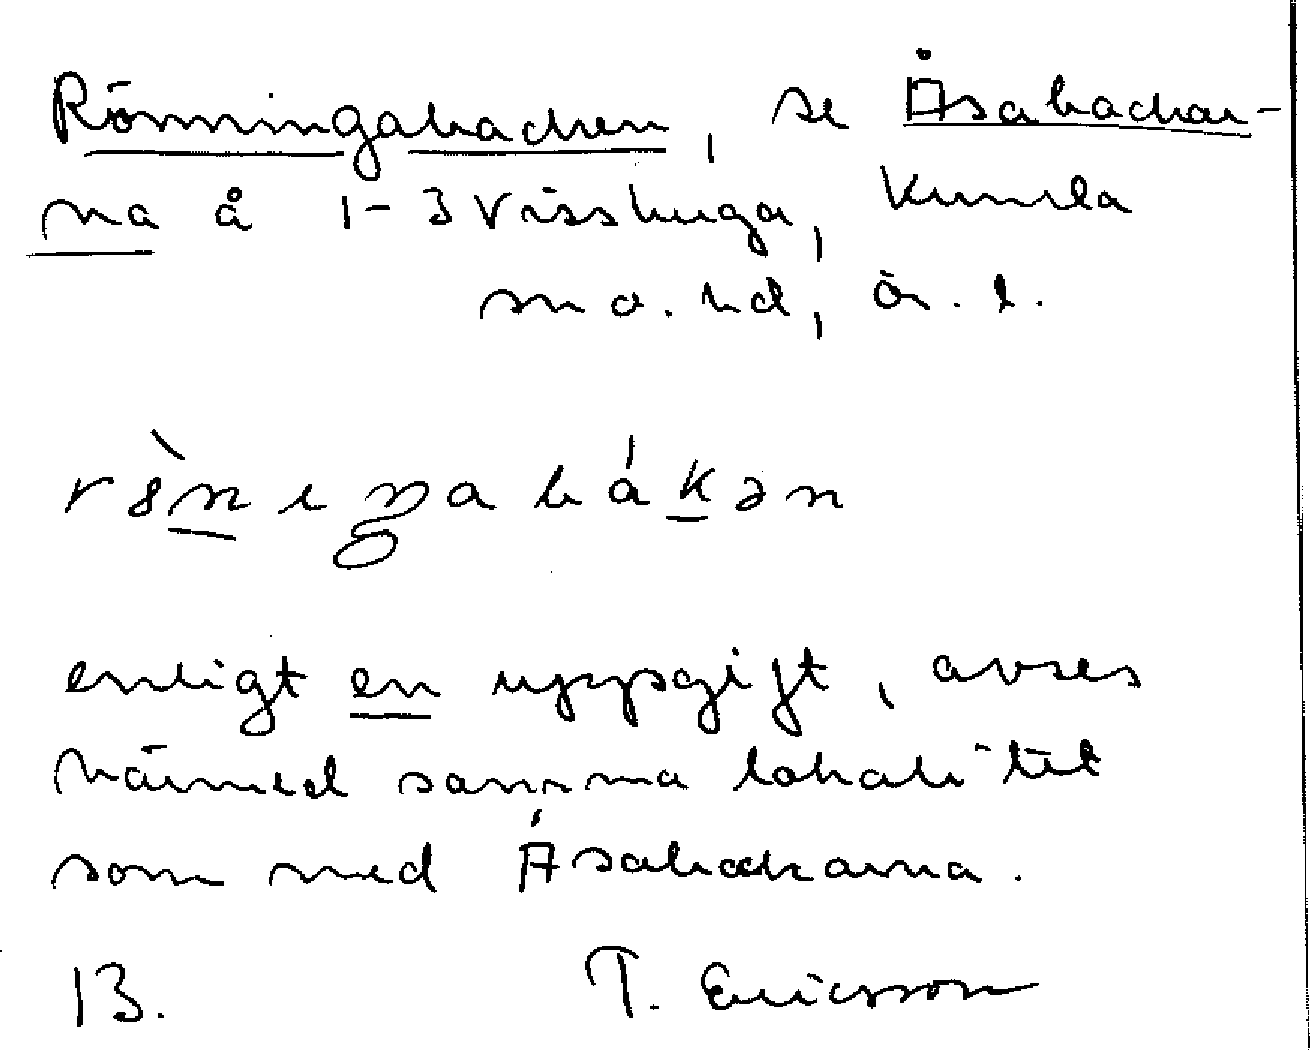 Rönningabacken, se Åsabackar-
na å 1-3 Visshuga, Kumla
sn o. hd, ör. l.
enligt en uppgift, avses
härmed samma lokalitet
som med Åsabackarna.
13. T. Ericsson